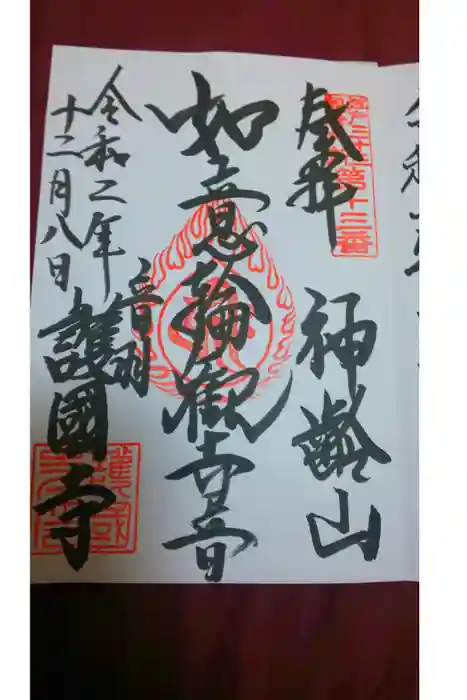 奉拝
神齢山
第十三番
如意輪観世音
令和二年
十二月八日
音羽
護國寺